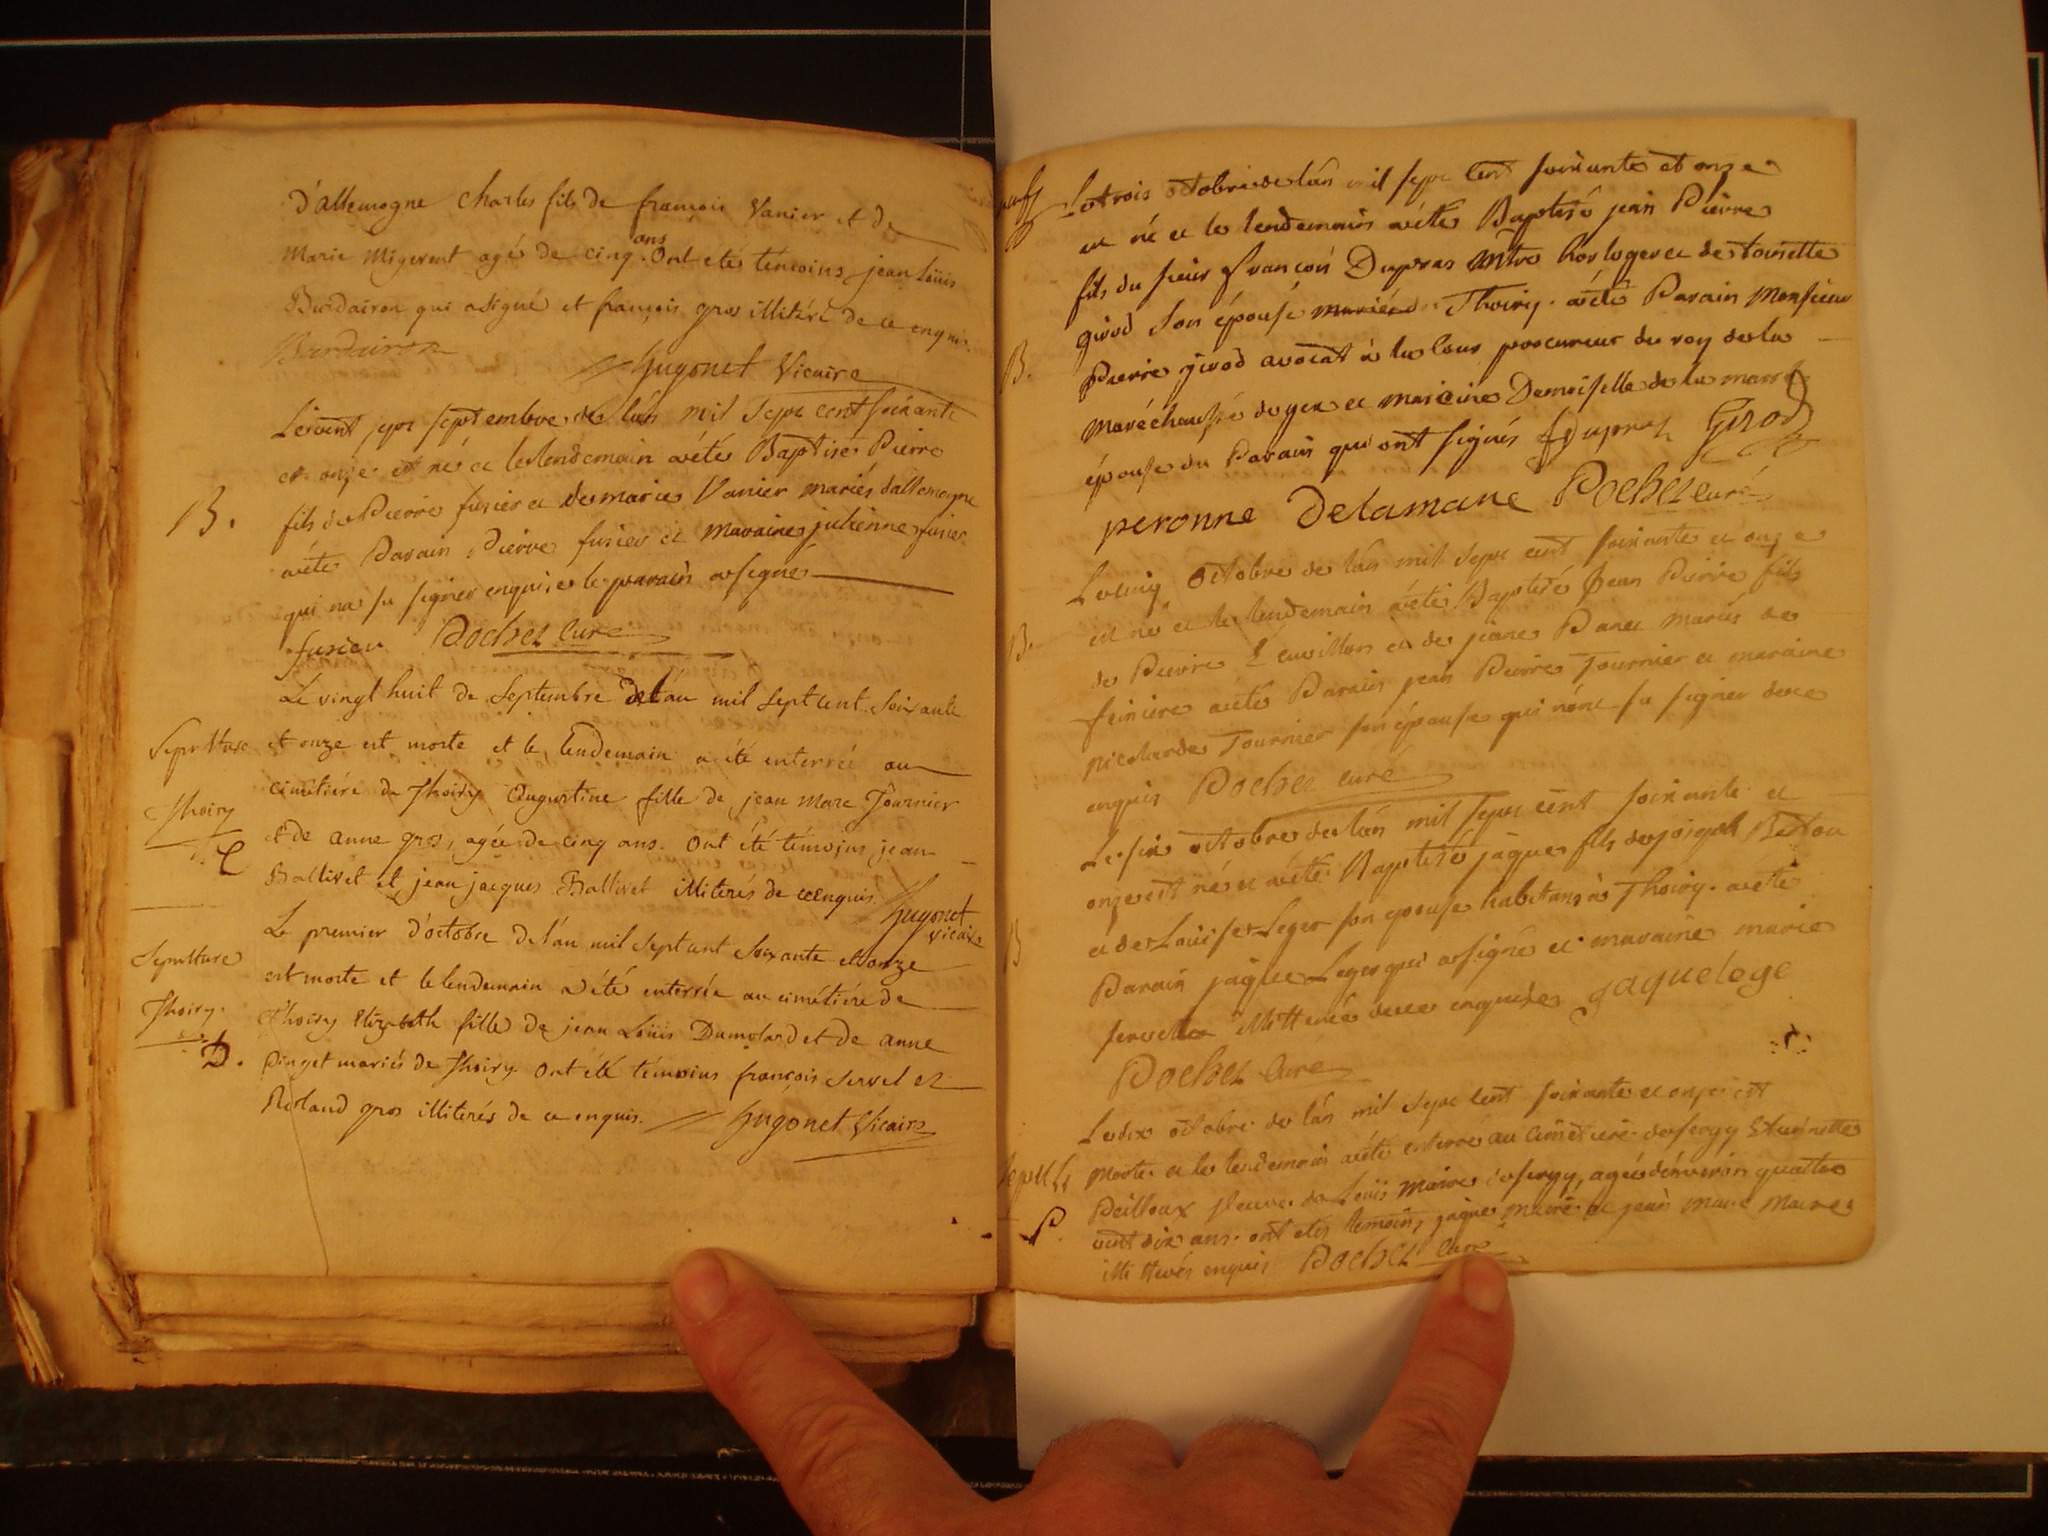 d'allemogne Charles fils de françois Vanier et de
Marie Migerent agé de cinq ans. Ont etés témoins jean Loüis
Burdairon qui a signé et françois gros illitéré de ce enquis.
Burdairon
Hugonet Vicaire
Le vent sept septembre de l'an mil sept cent soixante
et onze est né et le lendemain a été Baptisé Pierre
B.
fils de Pierre fusier et de marie Vanier mariés d'allemogne
a été Parain Pierre fusier et Maraine julienne fusier
qui na su signer enquise le parain a signé
fusier Pochet curé
Le vingt huit de Septembre de l'an mil sept cent soixante
Sepulture
et onze est morte et le lendemain a été enterrée au
cimetiére de Thoiry Augustine fille de jean Marc Tournier
Thoiry
et de anne gros, agée de cinq ans. Ont été témoins jean
C
Ballivet et jean jacques Ballivet illiterés de ce enquis.
Hugonet
vicaire
Le premier d'octobre de l'an mil sept cent soixante et onze
Sepulture
est morte et le lendemain a été enterrée au cimétiére de
Thoiry.
Thoiry Elizabeth fille de jean Loüis Dumolard et de anne
D.
pinget mariés de Thoiry ont été témoins françois Servel et
Roland gros illiterés de ce enquis. Hugonet Vicaire
Le trois octobre de l'an mil sept cent soixante et onze
est né et le lendemain a été Baptisé jean Pierre
fils du sieur françois Dupras Mtre horloger et de toinette
girod son épouse mariés Thoiry. a été Parain Monsieur
B.
Pierre girod avocat à la Cour procureur du roy de la
Maréchaussée de gex et maraine Demoiselle de la marre
épouse du Parain qui ont signés Dupras Girod
peronne Delamare Pochet curé
Le cinq Octobre de l'an mil sept cent soixante et onze
B.
est né et le lendemain a été Baptisé Jean Pierre fils
de Pierre et de jeane Panet mariés de
a été Parain jean Pierre Tournier et maraine
nicolarde Tournier son épouse qui n'ont su signer de ce
enquis Pochet curé
Le six octobre de l'an mil sept cent soixante et
onze est né et a été Baptisé jaques fils de joseph
et de Louise Leger son epouse habitans à Thoiry. a été
B
Parain jaque Leger qui a signé et maraine marie
servette illitterée de ce enquise jaque lege
Pochet Curé
Le dix octobre de l'an mil sept cent soixante et onze est
morte et le lendemain a été enterrée au cimetiere de sergy
Peilloux veuve de Loüis Maire de sergy, agée d'environ quatre
P.
vint dix ans. ont etés temoins jaques maire et jean marc Maire
illitterés enquis Pochet curé